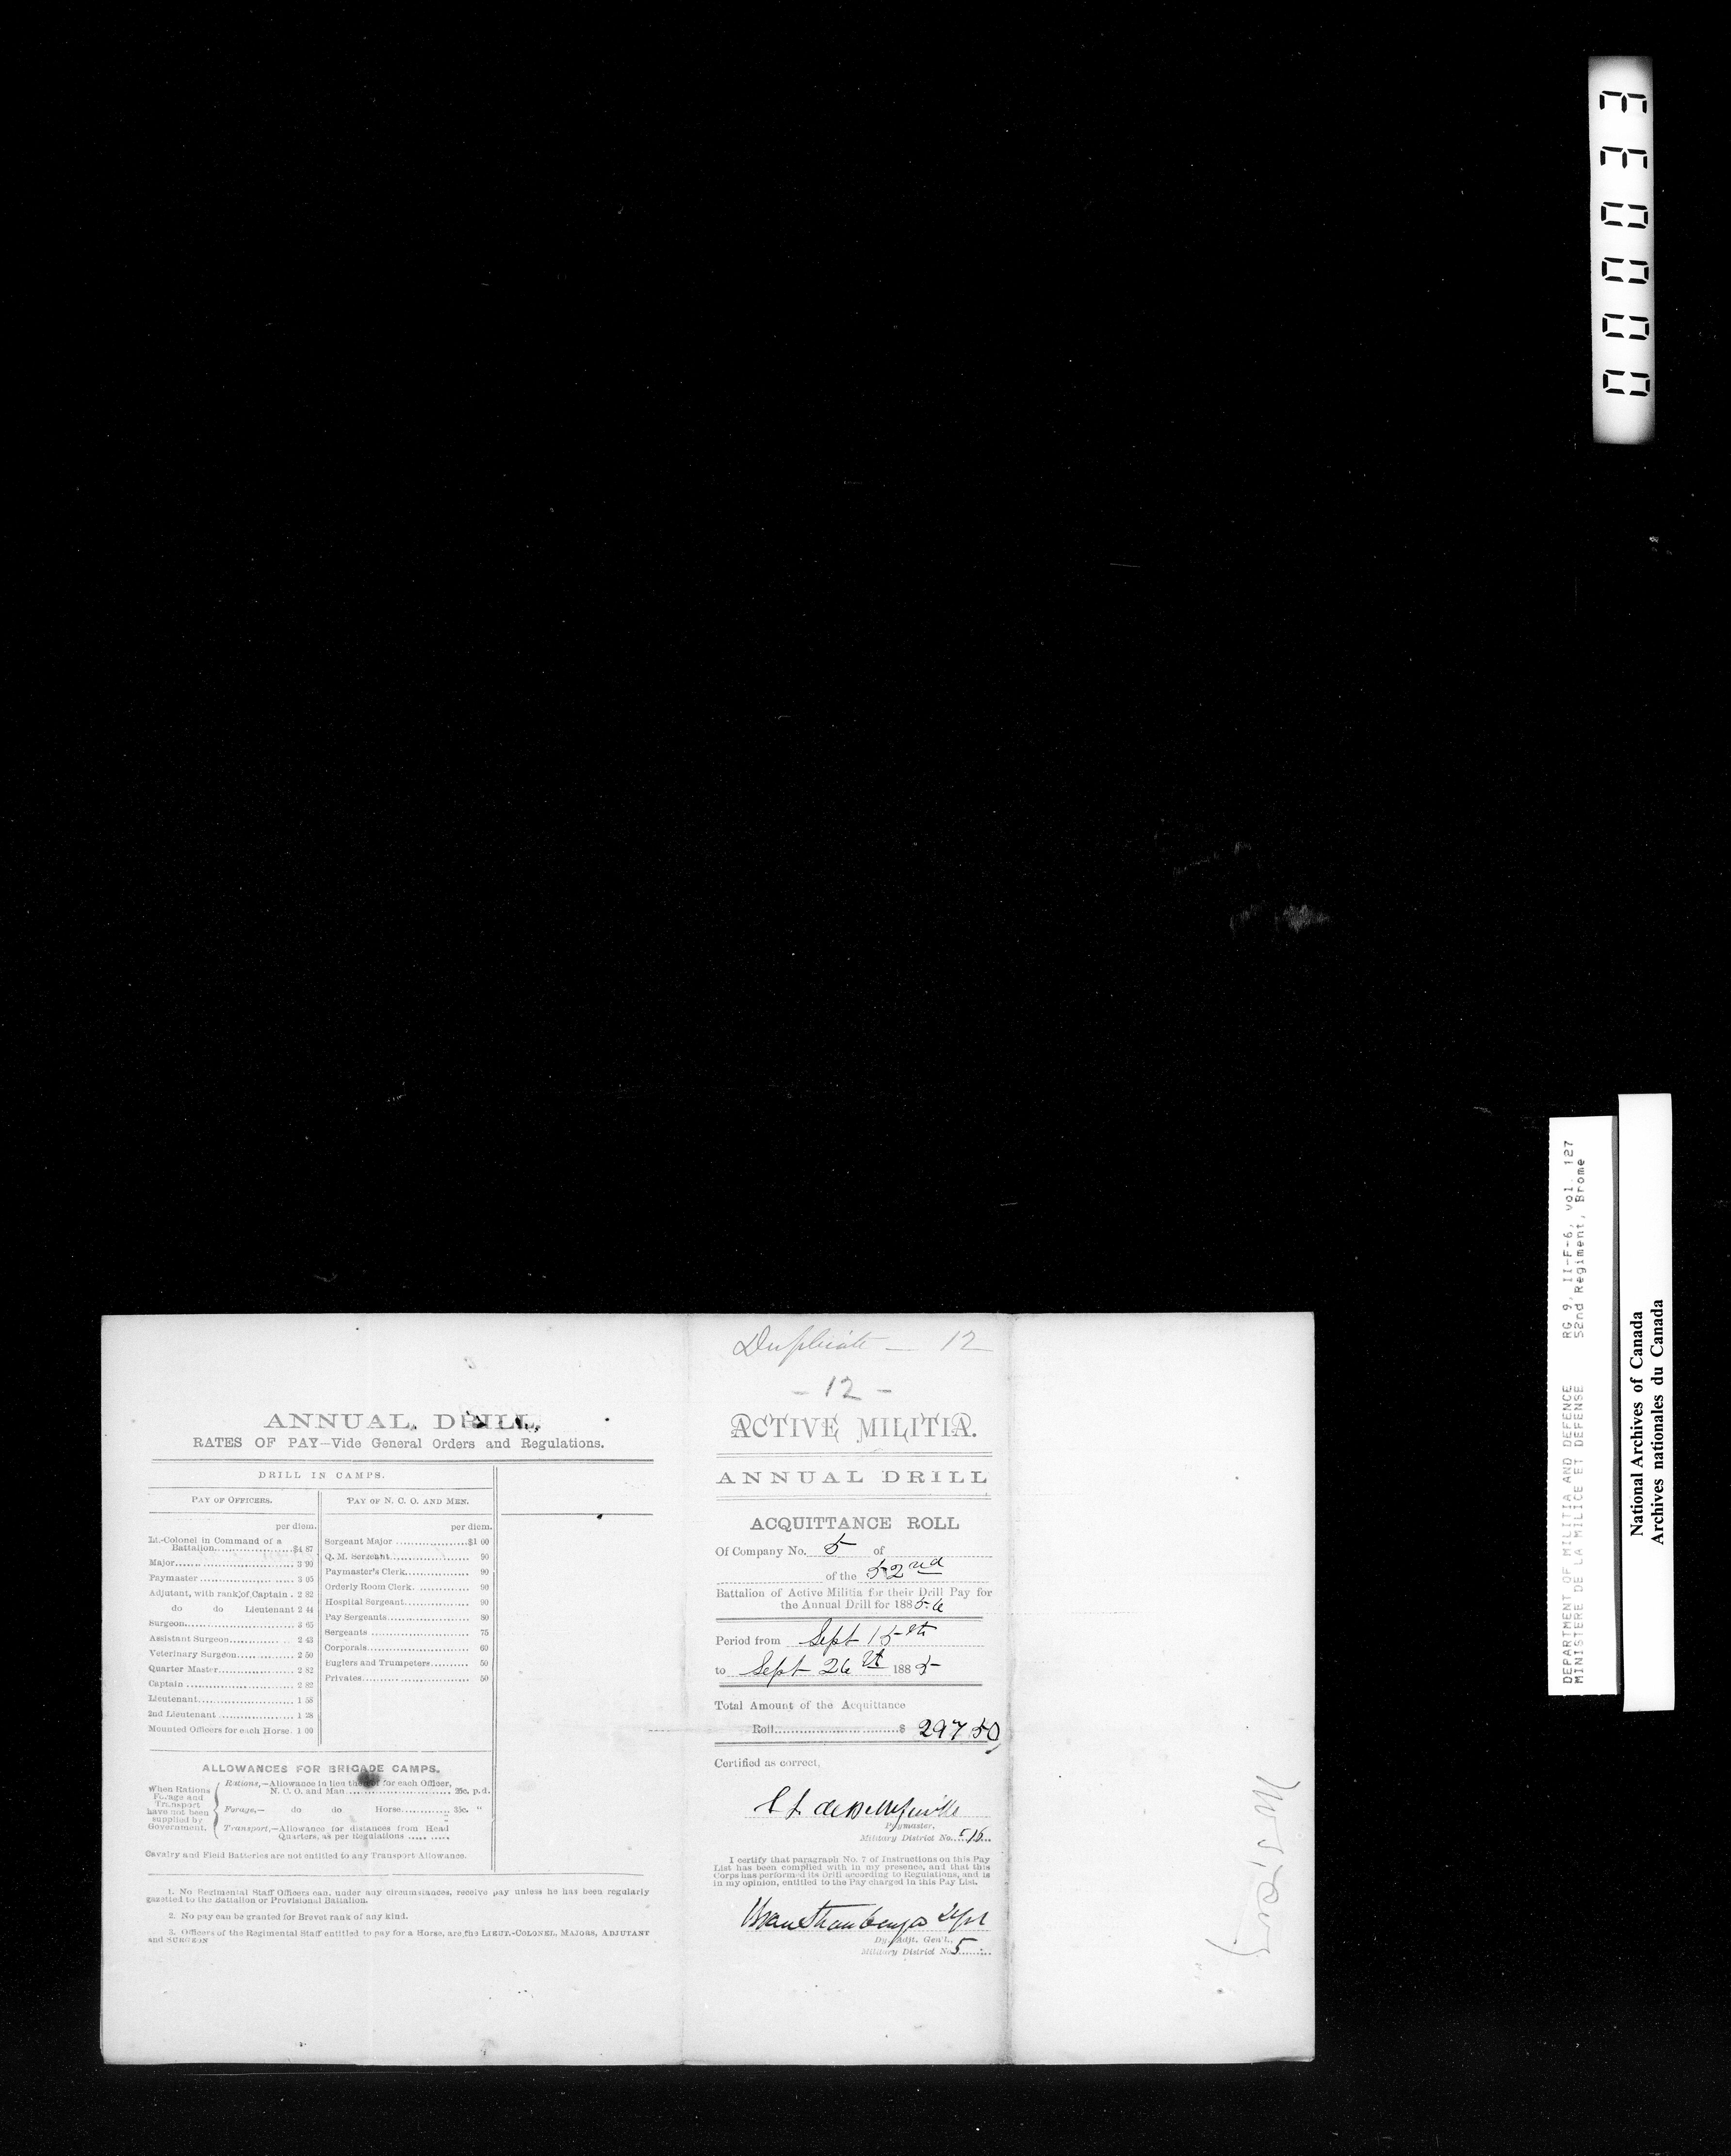 ANNUAL DRILL,
RATES OF PAY—Vide General Orders and Regulations.
DRILL IN CAMPS.
PAY OF OFFICERS.
per diem.
Lt.-Colonel in Command of a
Battalion..............$4 87
Major.............................. 3 90
Paymaster ........................ 3 05
Adjutant, with rank of Captain . 2 82
do do Lieutenant 2 44
Surgeon............................ 3 65
Assistant Surgeon............... 2 43
Veterinary Surgeon.............. 2 50
Quarter Master................... 2 82
Captain ............................ 2 82
Lieutenant......................... 1 58
2nd Lieutenant ................... 1 28
Mounted Officers for each Horse. 1 00
PAY OF N. C. O. AND MEN.
per diem.
Sergeant Major ................$1 00
Q. M. Sergeant.................... 90
Paymaster's Clerk................ 90
Orderly Room Clerk. ............ 90
Hospital Sergeant................ 90
Pay Sergeants..................... 80
Sergeants .......................... 75
Corporals........................... 60
Buglers and Trumpeters.......... 50
Privates............................. 50
ALLOWANCES FOR BRIGADE CAMPS.
When Rations
Forage and
Transport
have not been
supplied by
Government.
Rations,—Allowance in lieu thereof for each Officer,
N. C. O. and Man........................... 25c. p.d.
Forage,— do do Horse............ 35c. "
Transport,—Allowance for distances from Head
Quarters, as per Regulations ..... .....
Cavalry and Field Batteries are not entitled to any Transport Allowance.
1. No Regimental Staff Officers can, under any circumstances, receive pay unless he has been regularly
gazetted to the Battalion or Provisional Battalion.
2. No pay can be granted for Brevet rank of any kind.
3. Officers of the Regimental Staff entitled to pay for a Horse, are the LIEUT.-COLONEL, MAJORS, ADJUTANT
and SURGEON
Duplicate — 12
- 12 -
ACTIVE MILITIA.
ANNUAL DRILL
ACQUITTANCE ROLL
Of Company No. 5 of
of the 52nd
Battalion of Active Militia for their Drill Pay for
the Annual Drill for 1885-6
Period from Sept 15th
to Sept 26th 1885
Total Amount of the Acquittance
Roll..............................$ 297 50
Certified as correct,
Paymaster,
Military District No. 5
I certify that paragraph No. 7 of Instructions on this Pay
List has been complied with in my presence, and that this
Corps has performed its Drill according to Regulations, and is
in my opinion, entitled to the Pay charged in this Pay List.
Dy. Adjt. Gen'l.,
Military District No. 5
000033
DEPARTMENT OF MILITIA AND DEFENCE RG 9, II-F-6, vol. 127
MINISTERE DE LA MILICE ET DEFENSE 52nd Regiment, Brome
National Archives of Canada
Archives nationales du Canada